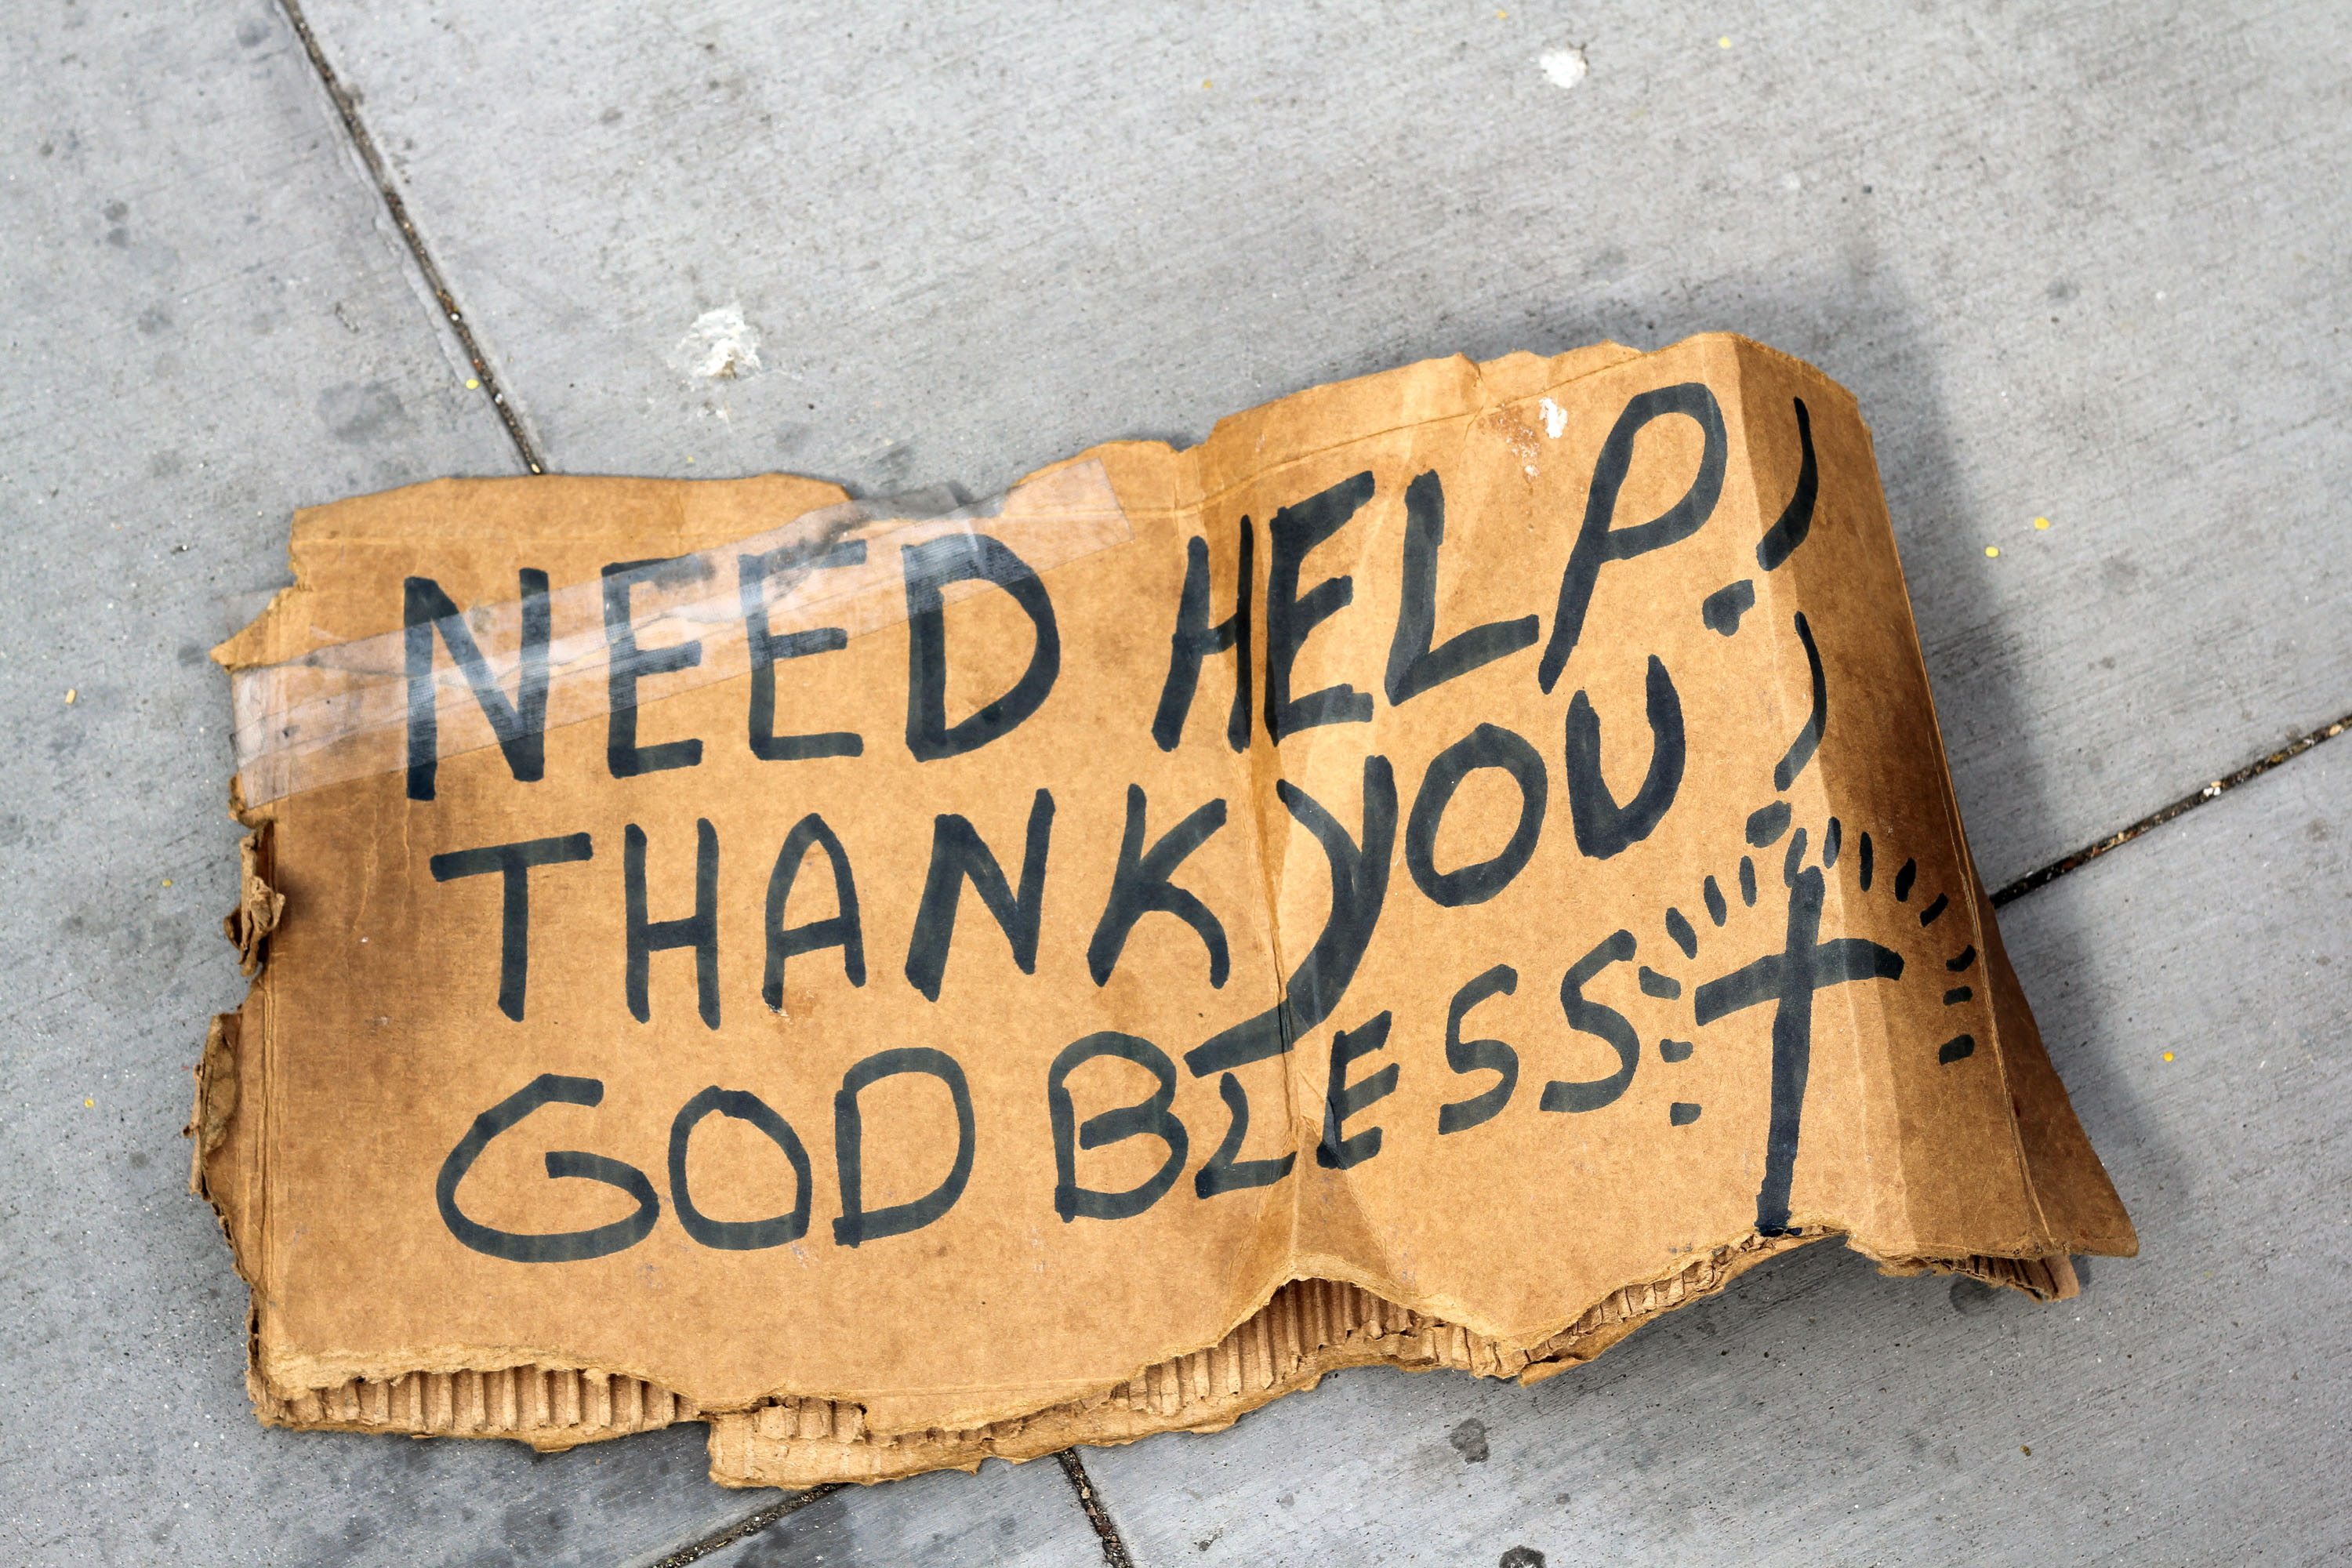 NEED HELP!
THANK YOU!
GOD BLESS